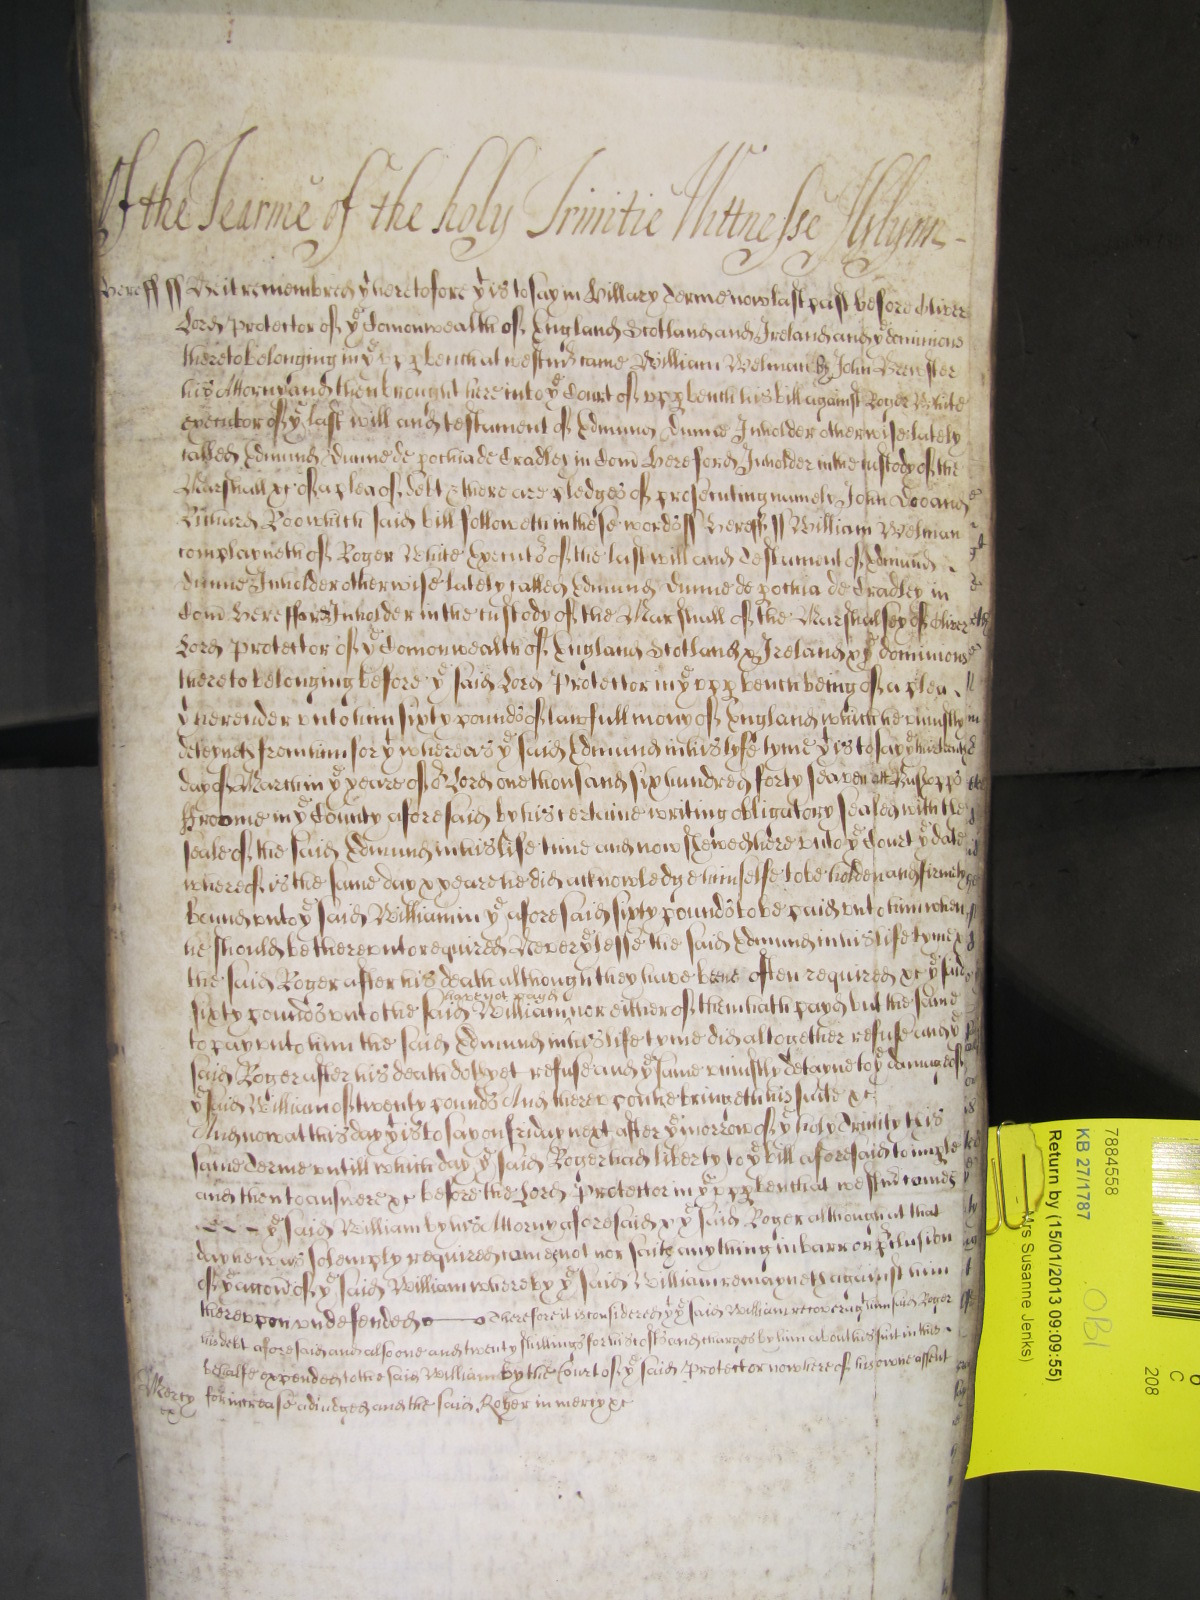 Of the Tearme of the holy Trinitie Wittnesse J Glynn -
Hereff ss Be it remembred yt heretofore yt is to say in Hillary Terme now last past before Oliver
Lord Protector of ye Comonwealth of England Scotland and Ireland and ye dominions
thereto belonging in ye upp bench at westmr came William Welman by John Brewster
his Attorny and then brought here into ye Court of upp bench his bill against Roger White
executor of ye last will and testament of Edmund Dunne Inholder otherwise lately
called Edmund Dunne de pochia de Cradley in Com Hereford Inholder in the custody of the
Marshall &c of a plea of debt & there are pledges of prosecuting namely John Doo and
Richard Roo which said bill followeth in these words ss Hereff ss William Welman
complayneth of Roger White Executor of the last will and Testament of Edmund
Dunne Inholder otherwise lately called Edmund Dunne de pochia de Cradley in
Com Hereford Inholder in the custody of the Marshall of the Marshalsey of Oliver
Lord Protector of ye Comonwealth of England Scotland & Ireland & ye dominions
thereto belonging before ye said Lord Protector in ye upp bench being of a plea
yt he render unto him sixty pounds of lawfull mony of England which he uniustly
deteyneth from him for yt whereas ye said Edmund in his lyfe tyme yt is to say ye
day of March in ye yeare of or Lord one thousand six hundred forty seaven att Bishopps
Froome in ye County aforesaid by his certaine writing obligatory sealed with the
seale of the said Edmund in his life time and now shewed here unto ye Court ye date
whereof is the same day & yeare he did acknowledge himselfe to be holden and firmely
bound unto ye said William in ye aforesaid sixty pounds to be paid unto him when
he should be thereunto required Neverthelesse the said Edmund in his life tyme &
the said Roger after his death although they have bene often required &c ye said
have not payd
sixty pounds unto the said William nor either of them hath payd but the same
to pay unto him the said Edmund in his life tyme did altogether refuse and ye
said Roger after his death doth yet refuse and ye same uniustly detayne to ye damage of
ye said William of twenty pounds And thereupon he bringeth his suite &c
And now at this day yt is to say on friday next after ye morrow of ye holy Trinity this
same Terme untill which day ye said Roger had liberty to ye bill aforesaid to imple
and then to answere &c before the Lord Protector in ye upp bench at westmr comes
ye said William by his Attorny aforesaid & ye said Roger although at that
day he was solemply required comes not nor saith any thing in barr or p'clusion
of ye accon of ye said William whereby ye said William remayneth against him
thereupon undefended Therefore it is considered yt ye said William recover ag him said Roger
his debt aforesaid and also one and twenty shillings for his costs and charges by him about his suit in this
behalfe expended to the said William by the Court of ye said Protector now here of his owne assent
for increase adiudged and the said Roger in mercy &c
Mercy
&c
7884558
KB 27/1787
Return by (15/01/2013 09:09:55)
Mrs Susanne Jenks)
OBI
C
208